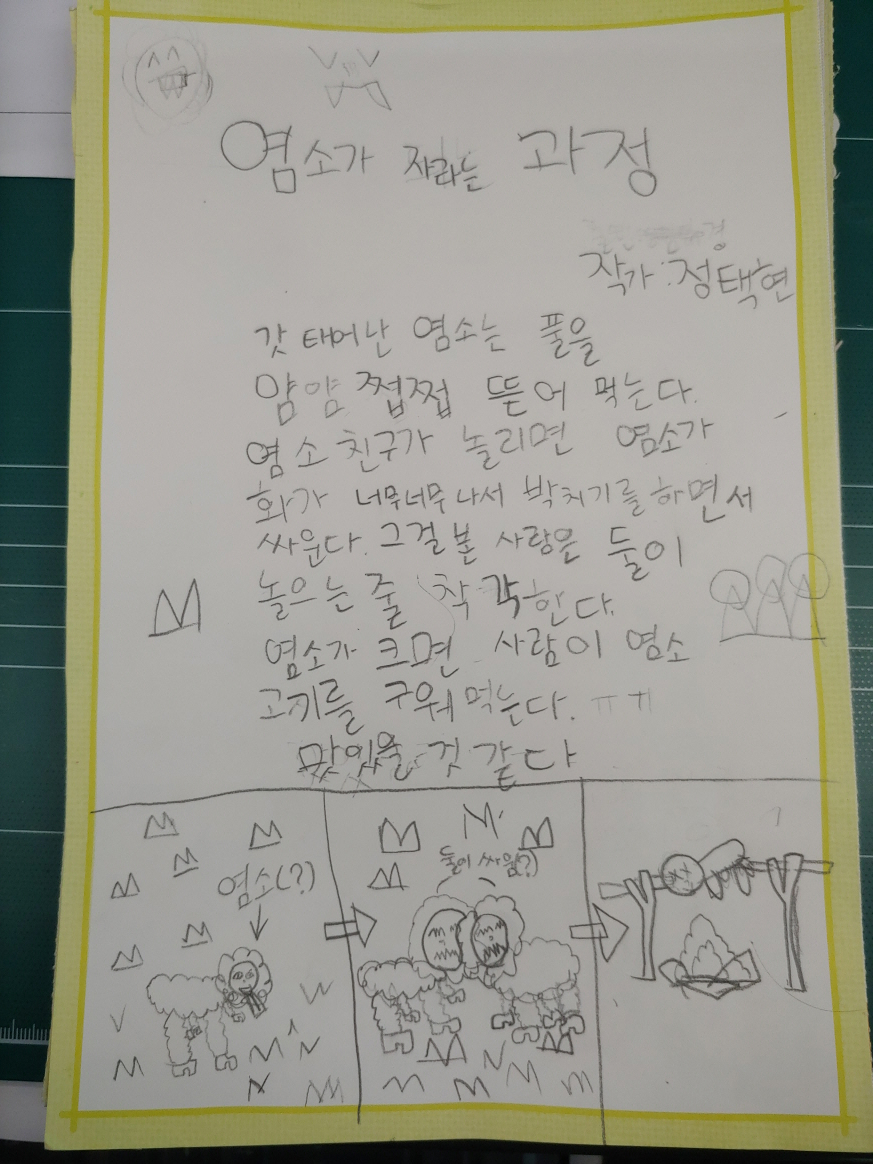 염소가 자라는 과정
작가:정택현
갓 태어난 염소는 풀을
얌얌 쩝쩝 뜯어 먹는다.
염소 친구가 놀리면 염소가
화가 너무너무 나서 박치기를 하면서
싸운다. 그걸 본 사람은 둘이
놀으는 줄 착각한다.
염소가 크면 사람이 염소
고기를 구워 먹는다. ㅠㅠ
맛있을 것 같다
염소(?)
둘이 싸움(?)